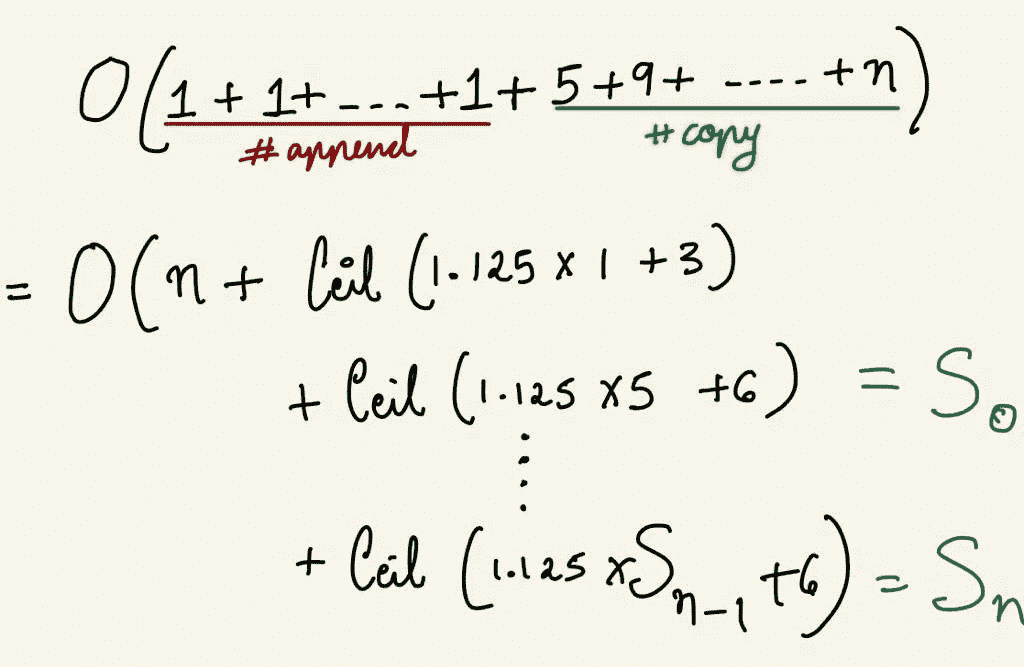 O(1 + 1+ --.. +1 + 5 +9+ ----.. +n)
#append #copy
= O(n + Ceil (1.125 x 1 +3)
+ Ceil (1.125 x5 +6) = S₀
⋮
+ Ceil (1.125 xSₙ₋₁ +6) = Sₙ